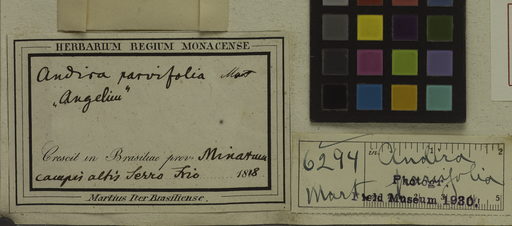 HERBARIUM REGIUM MONACENSE
Andira parvifolia Mart
„Angelim"
Crescit in Brasiliae prov. Minarum
campis altis Serro Frio 1818
Martius Iter Brasiliense.
6294 Andira
Mart parvifolia
Photogr.
Field Museum 1930.